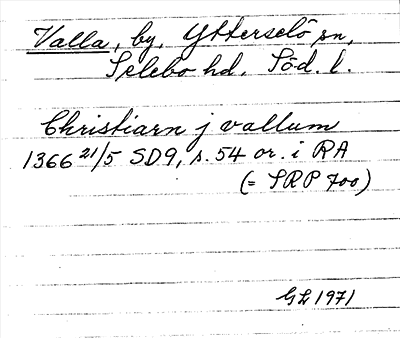 Valla, by, Ytterselö sn,
Selebo hd, Söd. l.
Christiarn j vallum
1366 21/5 SD9, s. 54 or. i RA
(= SRP 700)
GL 1971